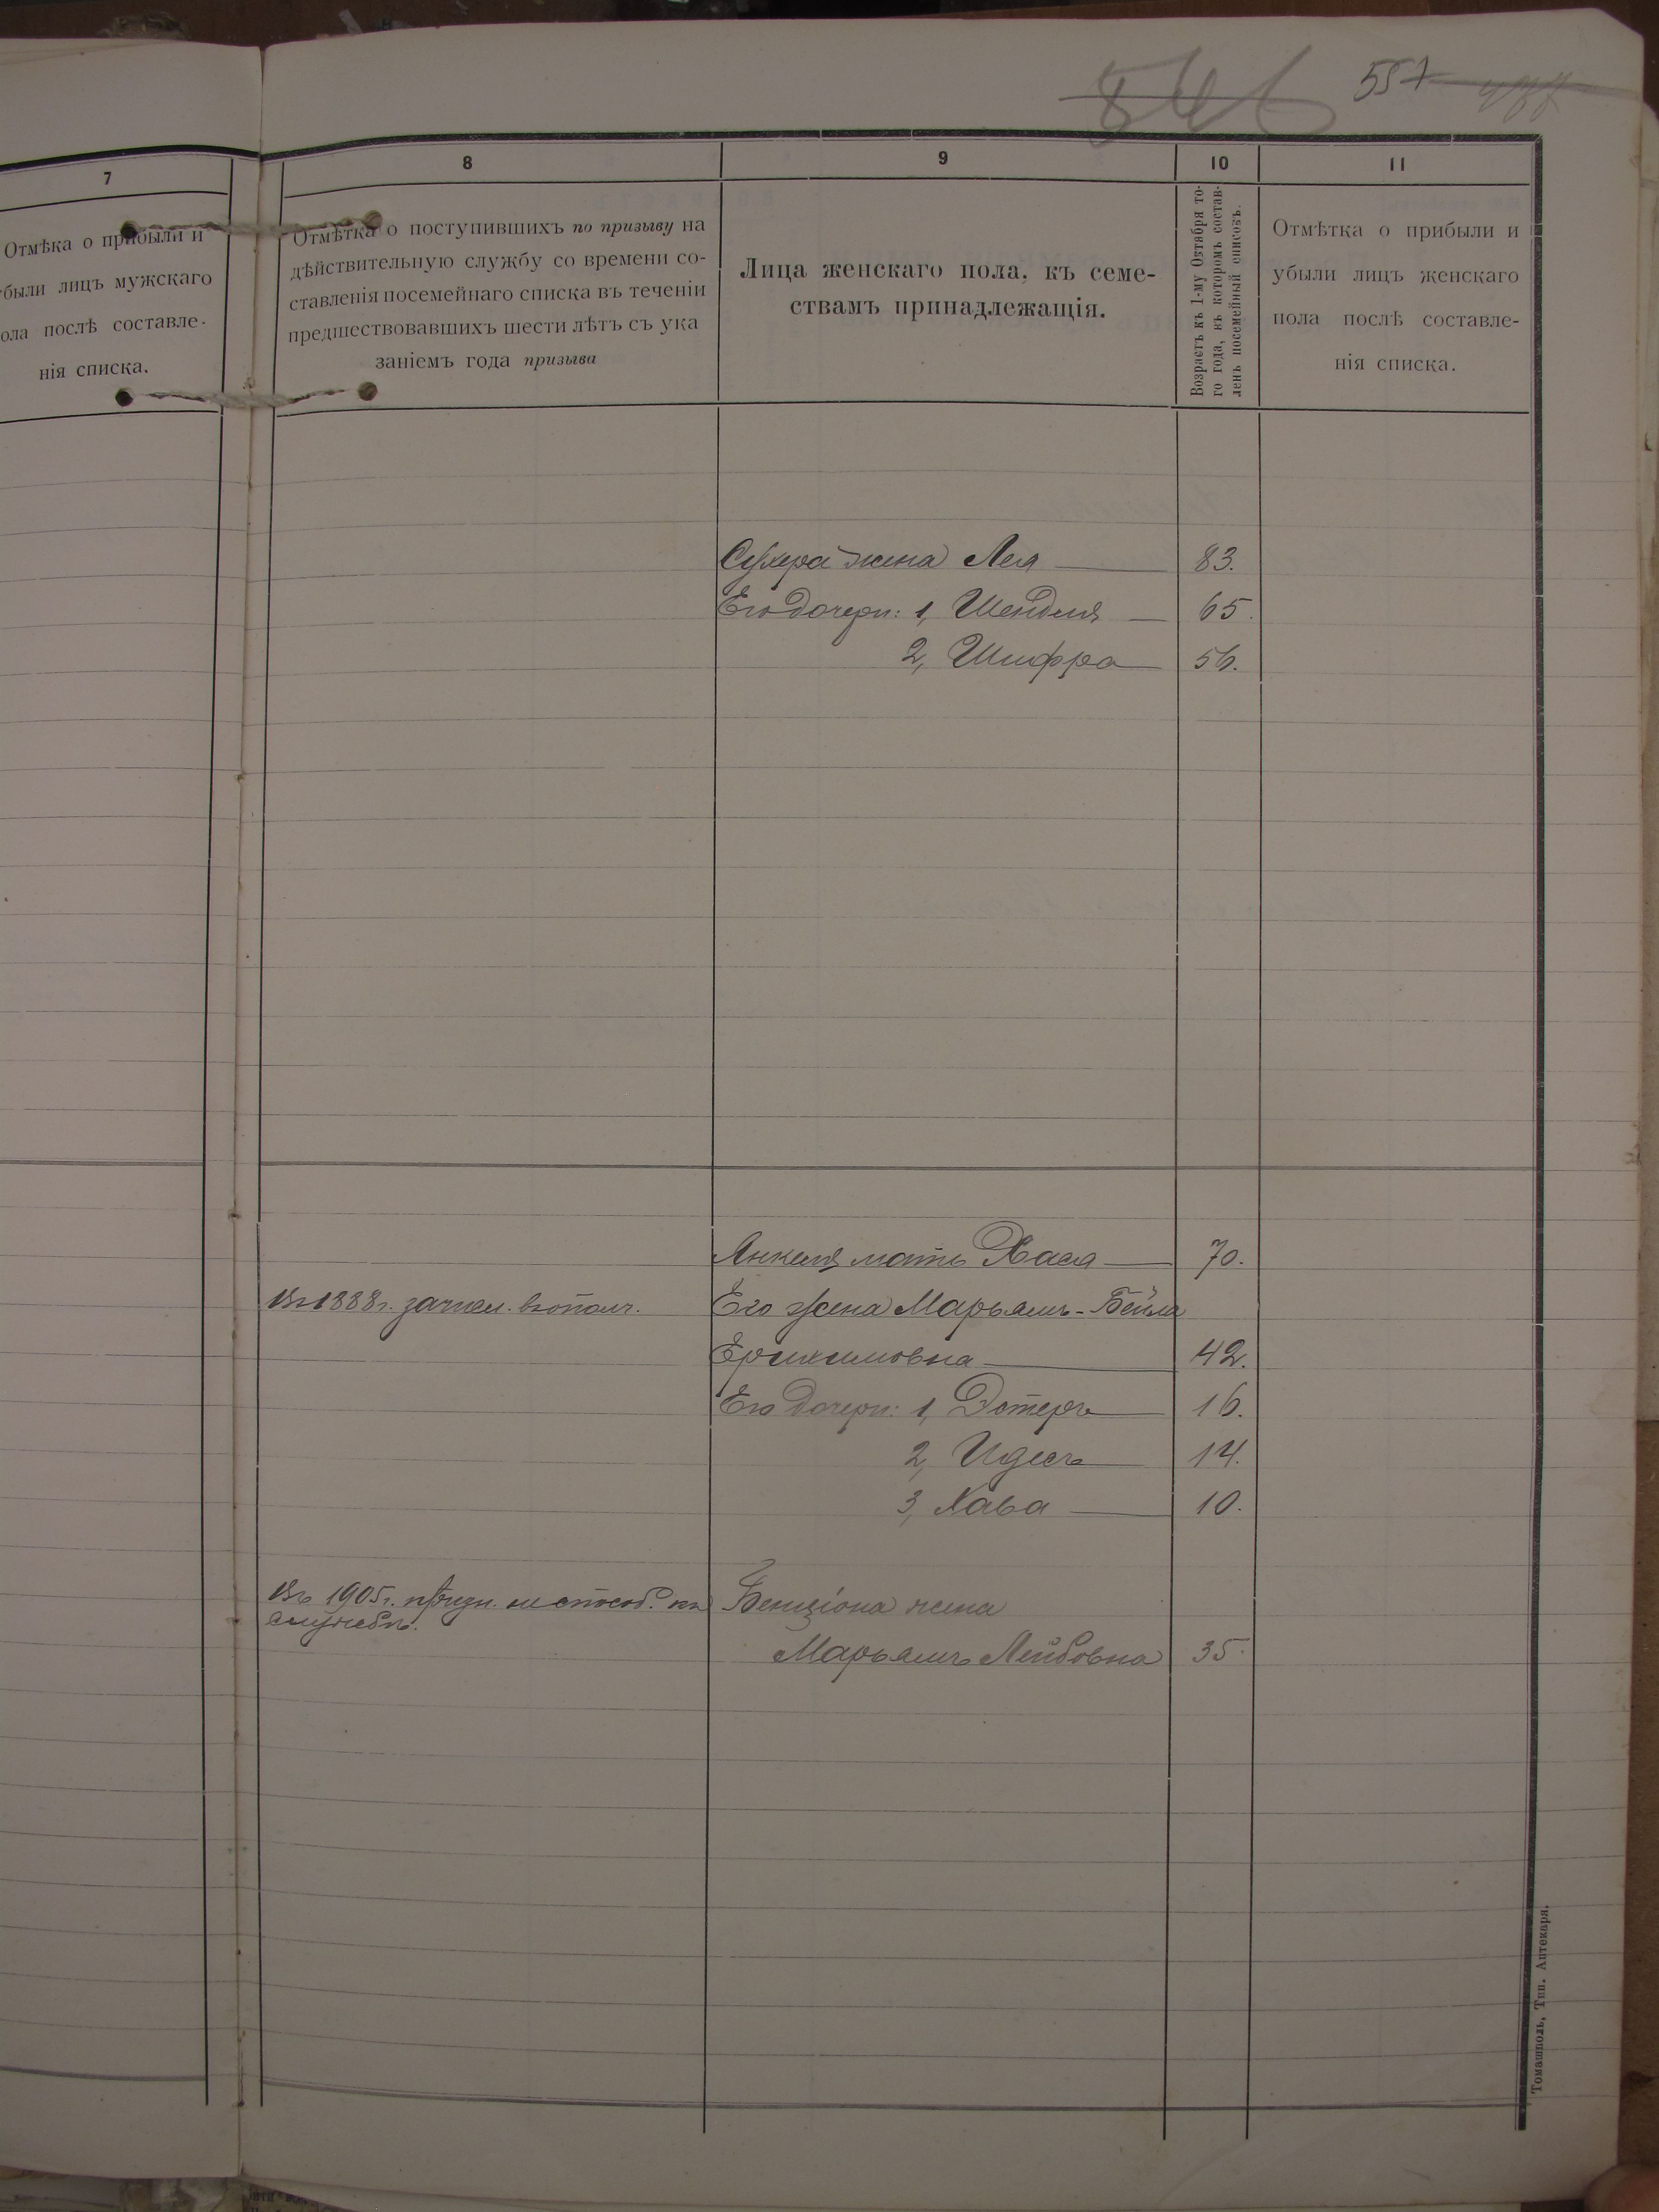 557
7
Отмѣка о прибыли и
были лицъ мужскаго
ола послѣ составле-
нія списка.
8
Отмѣтка о поступившихъ по призыву на
дѣйствительную службу со времени со-
ставленія посемейнаго списка въ теченіи
предшествовавшихъ шести лѣтъ съ ука
заніемъ года призыва
9
Лица женскаго пола, къ семе-
ствамъ принадлежащія.
10
Возрастъ къ 1-му Октября то-
го года, въ которомъ состав-
ленъ посемейный списокъ.
11
Отмѣтка о прибыли и
убыли лицъ женскаго
пола послѣ составле-
нія списка.
жена Лея 83.
Его дочери: 1, Шендля 65.
2, Шифра 56.
Янкеля мать Хася 70.
Въ 1888 г. зачисл. въ ополч. Его жена Марьямъ-Бейла
42.
Его дочери: 1, Эстеръ 16.
2, Идесъ 14.
3, Хава 10.
Въ 1905 г. призн. неспособ. къ Бенціона жена
службѣ.
Марьямъ Лейбовна 35.
Томашполь, Тип. Аптекаря.